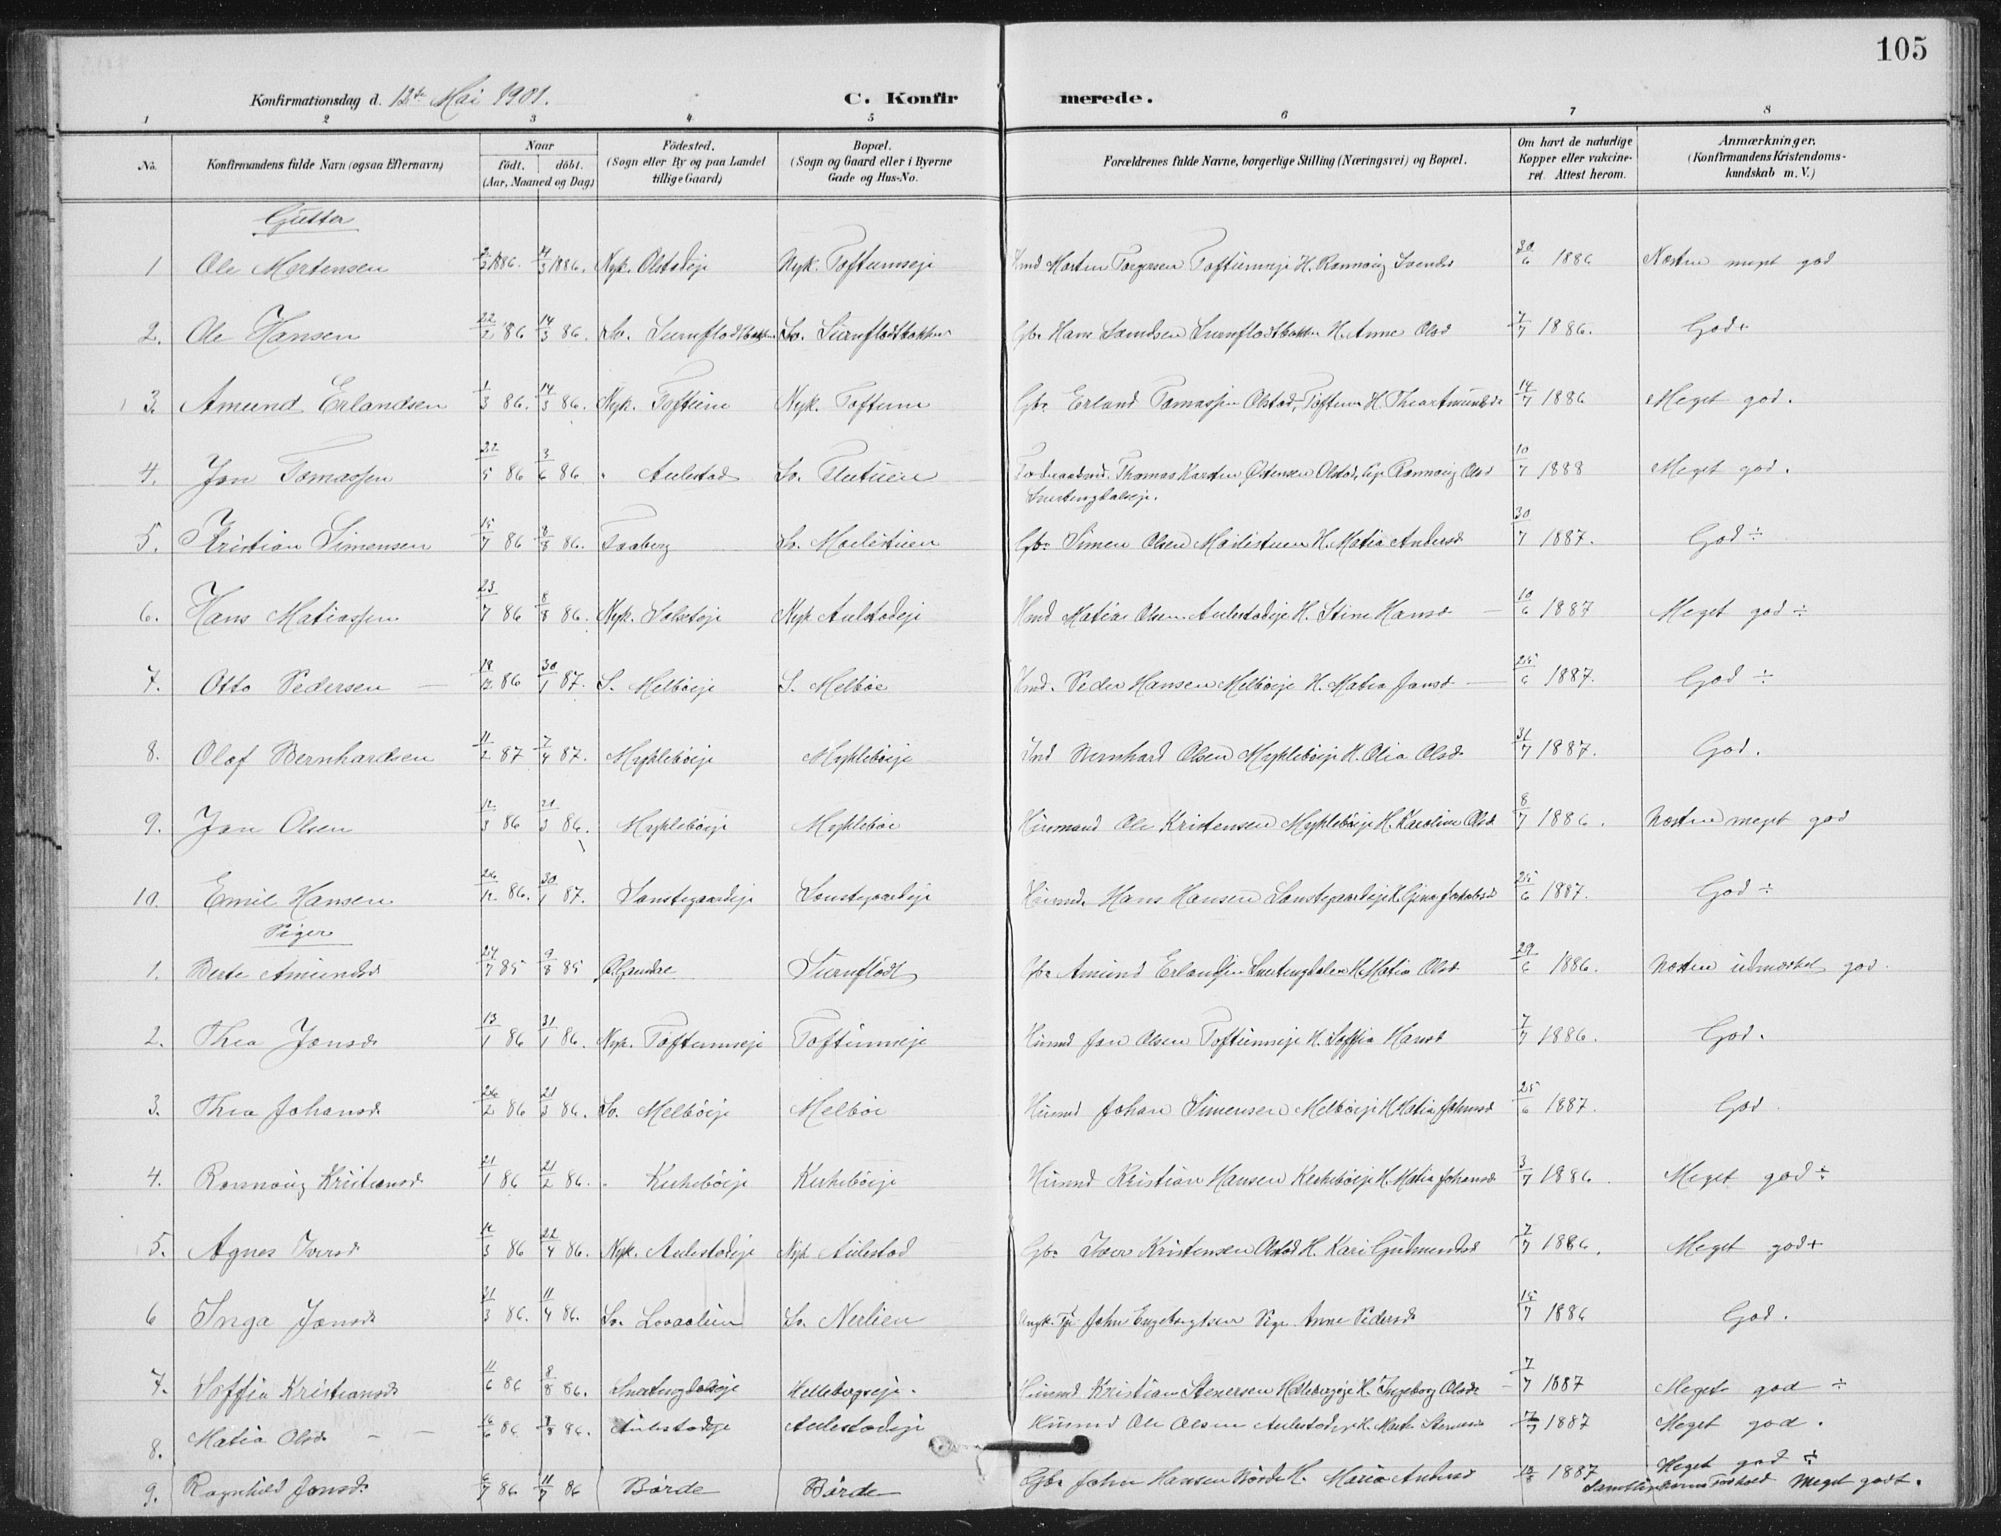 105
Konfirmationsdag d. 12te Mai 1901. C. Konfirmerede.
1 2 3 4 5 6 7 8
No. Konfirmandens fulde Navn (ogsaa Efternavn) Naar født. døbt. (Aar, Maaned og Dag) Fødested. (Sogn eller By og paa Landet tillige Gaard) Bopæl. (Sogn og Gaard eller i Byerne Gade og Hus-No. Forældrenes fulde Navne, borgerlige Stilling (Næringsvei) og Bopæl. Om havt de naturlige Kopper eller vakcineret. Attest herom. Anmærkninger. (Konfirmandens Kristendomskundskab m. V.)
Gutter
1 Ole Mortensen 2/3 1886. 4/3 1886. Nyk. Olstadeje Nyk. Toftumseje Hmd Morten Torgersen Toftumseje H. Rønnoug Svendsd 30/6 1886 Næsten meget god
2. Ole Hansen 22/2 86 14/3 86. Sø. Surnflødtbakken Sø. Surnflødtbakken Gbr Hans Hansen Surnflødtbakken H. Anne Olsd 7/7 1886. God+
3. Amund Erlandsen 1/3 86. 14/3 86. Nyk. Toftum Nyk. Toftum Gbr Erland Tomassen Olstad, Toftum H. Thea Amundsd 14/7 1886 Meget god.
4. Jon Tomassen 22/5 86 3/6 86 " Aulestad Sø. Flutuen Thomas Karsten Østensen Olstad, Pige Rønnoug Olsd Snertingdalseje. 10/7 1888 Meget god.
5. Kristian Simensen 15/7 86 8/8 86. Faaberg Sø. Moelistuen Gbr Simen Olsen Moelistuen H. Matia Andersd 30/7 1887. God ÷
6. Hans Matiassen 23/7 86 8/8 86. Nyk. Solbergeje Nyk Aulestadeje Hmd Matias Olsen Aulestadeje H. Stine Hansd 10/6 1887 Meget god ÷
7. Otto Pedersen 18/12 86 30/1 87. S. Melbøeje S. Melbøe Hmd. Peder Hansen Melbøeje H. Matea Jonsd 25/6 1887. God ÷
8. Olaf Bernhardsen 11/2 87 7/4 87. Myklebøeje Myklebøeje Ind Bernhard Olsen Myklebøeje H. Olia Olsd 31/7 1887. God.
9. Jon Olsen 12/3 86 21/3 86. Myklebøeje Myklebøe Husmand Ole Kristensen Myklebøeje H. Karoline Olsd 8/7 1886. Næsten meget god
10. Emil Hansen 26/12 86. 30/1 87. Sønstegaardeje Sønstegaardeje Husmd. Hans Hansen Sønstegaardeje H. Gina Jakobsd 25/6 1887. God ÷
Piger
1. Berte Amundsd 24/7 85 9/8 85 Surnflødt Gbr Amund Erlandsen Snertingdalen H. Matia Olsd 29/6 1886. Næsten udmærket god.
2. Thea Jonsd. 13/1 86 31/1 86. Nyk. Toftumseje Toftumseje Husmd Jon Olsen Toftumseje H. Soffia Hansd 7/7 1886. God.
3. Thea Johansd. 26/2 86 21/3 86. Sø. Melbøeje Melbøe Husmd Johan Simensen Melbøeje H. Matia Johnsd 25/6 1887. God
4. Rønnoug Kristiansd. 21/1 86 21/2 86. " Kirkebøeje Kirkebøeje Husmd Kristian Hansen Kirkebøeje H. Matia Johansd 3/7 1886. Meget god ÷
5. Agnes Iversd. 12/3 86 22/4 86. Nyk. Aulestadeje Nyk Aulestad Gbr Iver Kristensen Olstad H. Kari Gudmundsd 7/7 1886. Meget god+
6 Inga Jonsd. 21/3 86. 11/4 86. Sø. Lovaalien Sø. Nerlien Ungk. John Engebregtsen Pige Anne Pedersd 15/7 1886 God.
7. Soffia Kristiansd. 11/6 86 8/8 86. Snertingdalseje Hellebergseje. Husmd Kristian Steners en Hellebergseje H. Ingeborg Olsd. 7/7 1887 Meget god ÷
8. Matia Olsd 16/6 86 8/8 86. Aulestadeje Aulestadeje Husmd Ole Olsen Aulestadeje H. Marte 1887 Meget god.
9. Ragnhild Jonsd. 6/7 86 11/7 86 Børde Børde Gbr John Hansen Børde H. Maria Andersd 18/8 1887 Meget god ÷
Samtliges Forhold Meget godt.